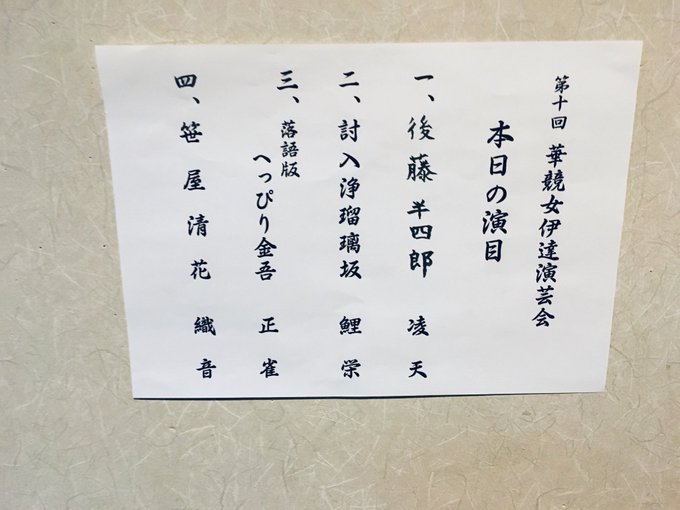 第十回 華競女伊達演芸会
本日の演目
一、後藤半四郎 凌天
二、討入浄瑠璃坂 鯉栄
三、落語版
へっぴり金吾 正雀
四、笹屋清花 織音